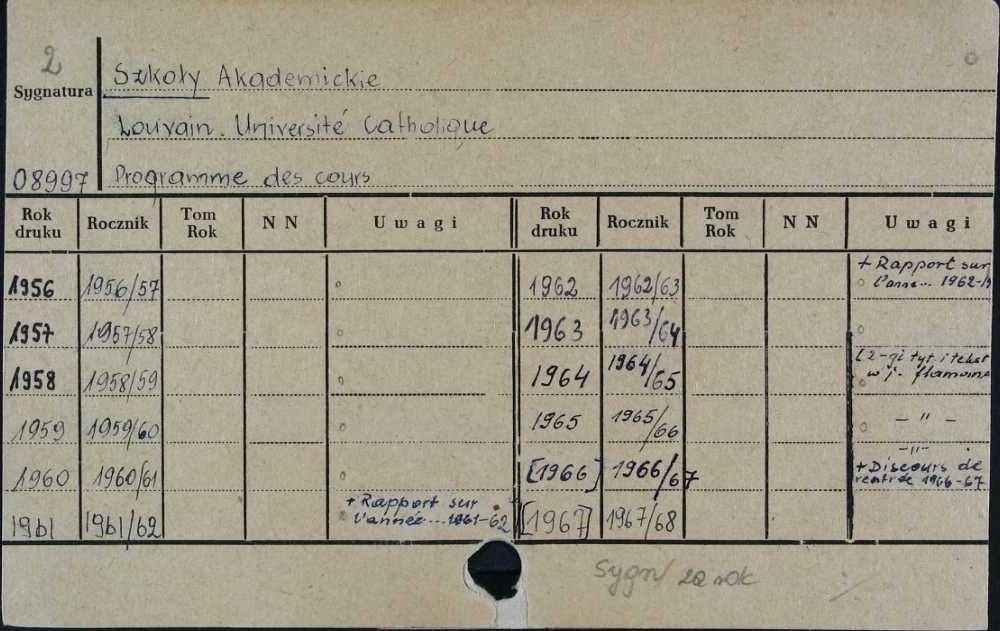 2
Sygnatura
Szkoły Akademickie
Louvain. Université Catholique
08997
Programme des cours
Rok druku Rocznik Tom Rok N N Uwagi Rok druku Rocznik Tom Rok N N Uwagi
1956 1956/57 1962 1962/63 + Rapport sur
l'anné... 1962-
1957 1957/58 1963 1963/64
1958 1958/59 1964 1964/65 [2-gi tyt. i tekst
w j. flamandz
1959 1959/60 1965 1965/66 - " -
1960 1960/61 [1966] 1966/67 - " -
+ Discours de
rentrée 1966-67
1961 1961/62 + Rapport sur
l'année... 1961-62
[1967] 1967/68
Sygn/ za rok